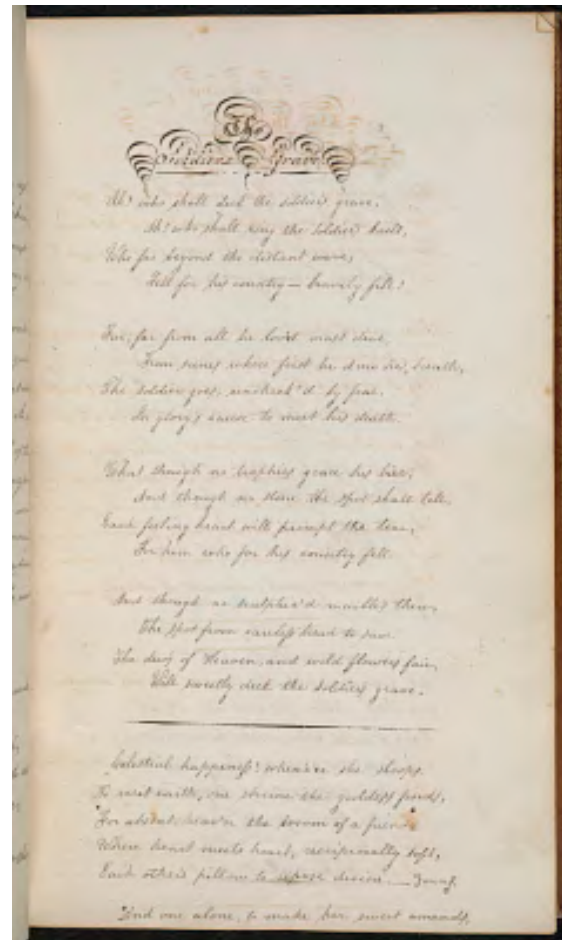 The
Soldiers Grave
Ah! who shall deck the soldiers grave,
Ah! who shall ring the soldiers knell,
Who far beyond the distant wave,
Fell for his country — bravely fell!
Far, far from all he lov'd most dear,
From scenes where first he drew his breath,
The soldier goes, uncheck'd by fear
In glory's cause to meet his death.
What though no trophies grace his bier,
And though no stone the spot shall tell,
Each feeling heart will prompt the tear,
For him who for his country fell.
And though no sculptur'd marbles there,
The spot from careless tread to save
The dews of Heaven, and wild flowers fair,
Will sweetly deck the soldiers grave.
Celestial happiness! whene'er she stoops
To visit earth, one shrine the goddess finds,
For absent heav'n the bosom of a friend
Where heart meets heart, reciprocally soft,
Each others pillow to repose divine. — Young.
And one alone, to make her sweet amends,